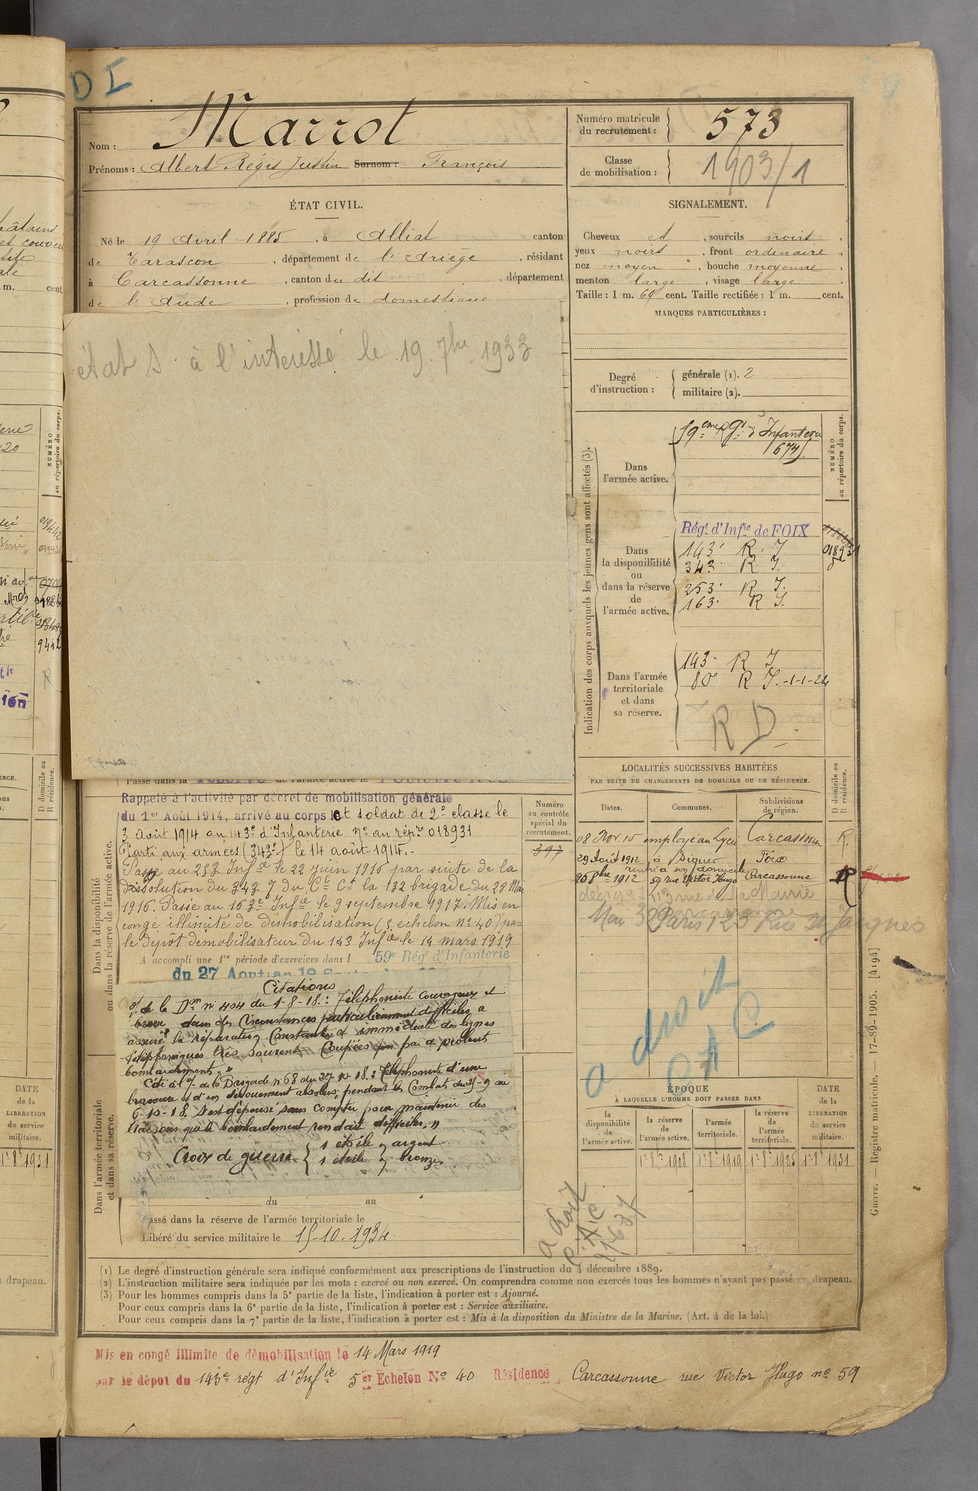 DI
Nom : Marrot
Prénoms : Albert Régis Justin Surnom : François
Numéro matricule du recrutement : 573
Classe de mobilisation : 1903/1
ÉTAT CIVIL.
Né le 19 Avril 1885, à Alliat canton
de Tarascon, département de l'Ariège, résidant
à Carcassonne, canton du dit, département
de l'Aude, profession de domestique
SIGNALEMENT.
Cheveux et, sourcils noirs,
yeux noirs, front ordinaire,
nez moyen, bouche moyenne,
menton large, visage large
Taille : 1 m. 64 cent. Taille rectifiée : 1 m. cent.
MARQUES PARTICULIÈRES :
Degré d'instruction : générale (1). 2
militaire (2).
état S. à l'interéssé le 19. 7bre 1933
Indication des corps auxquels les jeunes gens sont affectés (3).
NUMÉRO au répertoire du corps.
Dans l'armée active.
59eme Rgt d'Infanterie
674
Dans la disponibilité ou dans la réserve de l'armée active.
Régt d'Infie de FOIX
143e R. I.
343e R I.
253e R I.
163e R I.
018931
Dans l'armée territoriale et dans sa réserve.
143e R I
80e R I. -1-1-24
R D.
Passé dans la réserve de l'armée active le
Rappelé à l'activité par décret de mobilisation générale
du 1er Août 1914, arrivé au corps le et soldat de 2e classe le
3 Août 1914 au 143e d'Infanterie no au répre 018931
Parti aux armées (343e) le 14 août 1914.-
Passé au 253 Infie le 22 juin 1916 par suite de la
dissolution du 343 I du Gl Ct la 132 brigade du 29 Mai
1916. Passé au 163e Infie le 9 septembre 1917. Mis en
congé illimité de démobilisation (5 echelon no 40) par
le dépôt démobilisateur du 143 Infie le 14 mars 1919
A accompli une 1re période d'exercices dans l 59e Rég. d'Infanterie
du 27 Aout au
Citations
O/ de la Don no 404 du 1-8-18 : Téléphoniste courageux et
brave dans des circonstances particulièrement difficiles, a
assuré la réparation constante et immédiate des lignes
téléphoniques très souvent coupées par de violents
bombardements. "
Cité à l'O/ de la Brigade no 68 du 27-10-18 : Téléphoniste d'une
bravoure et d'un dévouement absolus, pendant les Combats du 25-9 au
6-10-18. S'est dépensé sans compter pour maintenir des
liaisons que le bombardement rendait difficiles. "
Croix de guerre { 1 étoile argent
1 étoile bronze
du au
Passé dans la réserve de l'armée territoriale le
Libéré du service militaire le 15-10-1934
Dans la disponibilité ou dans la réserve de l'armée active.
Dans l'armée territoriale et dans sa réserve.
Numéro au contrôle spécial du recrutement.
397
LOCALITÉS SUCCESSIVES HABITÉES
PAR SUITE DE CHANGEMENTS DE DOMICILE OU DE RÉSIDENCE.
Dates. Communes. Subdivisions de région. D domicile ou R résidence.
08 Nov. 10 employé au Lycée Carcassonne R.
29 Août 1912 à Siguer Foix
rentré à son domicile
20 8bre 1912 59 rue Victor Hugo Carcassonne R
Paris 123 Rue St Jacques
a droit
C A C
ÉPOQUE
À LAQUELLE L'HOMME DOIT PASSER DANS
la disponibilité de l'armée active. la réserve de l'armée active. l'armée territoriale. la réserve de l'armée territoriale. DATE de la LIBERATION du service militaire.
1er 8bre 1908 1er 8bre 1919 1er 8bre 1925 1er 8bre 1931
a droit
C.A.C
21637
Guerre. — Registre matricule. — 17-89-1905. [4194]
(1) Le degré d'instruction générale sera indiqué conformément aux prescriptions de l'instruction du 4 décembre 1889.
(2) L'instruction militaire sera indiquée par les mots : exercé ou non exercé. On comprendra comme non exercés tous les hommes n'ayant pas passé au drapeau.
(3) Pour les hommes compris dans la 5e partie de la liste, l'indication à porter est : Ajourné.
Pour ceux compris dans la 6e partie de la liste, l'indication à porter est : Service auxiliaire.
Pour ceux compris dans la 7e partie de la liste, l'indication à porter est : Mis à la disposition du Ministre de la Marine. (Art. 4 de la loi.)
Mis en congé illimité de démobilisation le 14 Mars 1919
par le dépôt du 143e régt d'Infie 5er Echelon No 40 Résidence Carcassonne rue Victor Hugo no 59